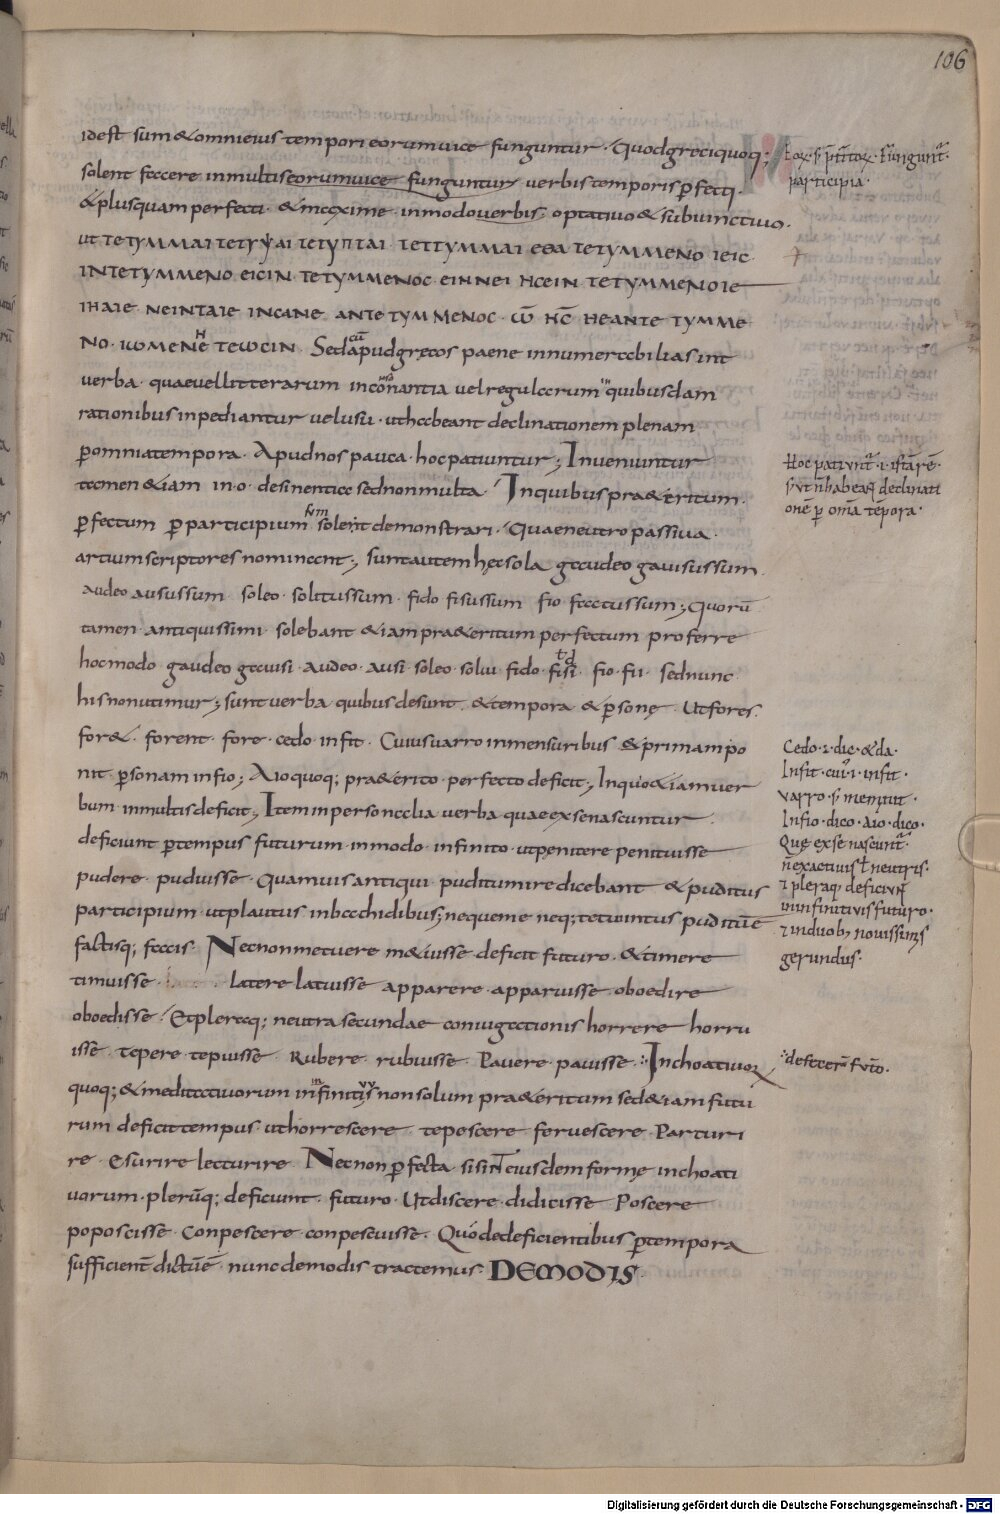 106
idest sum & omni eius tempori eorum uice funguntur. Quod greci quoq;
solent facere in multis eorum uice funguntur uerbis temporis pfecti.
& plusquamperfecti. & maxime in modo uerbis. optatiuo & subiunctiuo.
ut ΤΕΤΥΜΜΑΙ ΤΕΤΥΨΑΙ ΤΕΤΥΠΤΑΙ ΤΕΤΤΥΜΜΑΙ ΕΘΑ ΤΕΤΥΜΜΕΝΟ ΙΕΙC
ΙΝΤΕΤΥΜΜΕΝΟ ΕΙCΙΝ ΤΕΤΥΜΜΕΝΟC ΕΙΝΝΕΙ ΗCΕΙΝ ΤΕΤΥΜΜΕΝΟΙΕ
ΙΗΑΙΕ ΝΕΙΝΤΑΙΕ ΙΝCΑΝΕ ΑΝΤΕΤΥΜΜΕΝΟC. Ѡ ΗC ΗΕΑΝΤΕ ΤΥΜΜΕ
ΝΟ. ΙѠΜΕΝΕ ΤΕѠCΙΝ. Sed apud grecos paene innumerabilia sint
uerba. quae uel litterarum inconantia uel regularum quibusdam
rationibus inpediantur uel usu. ut habeant declinationem plenam
pomnia tempora. Apud nos pauca. hoc patiuntur; Inueniuntur
tamen & iam in.o. desinentia sed non multa. In quibus pra&eritum.
pfectum pparticipium sum solent demonstrari. Quae neutro passiua.
artium scriptores nominant; sunt autem hęc sola gaudeo gauisus sum.
audeo ausus sum. soleo. solitus sum. fido fisus sum fio factus sum; Quorū
tamen. antiquissimi solebant & iam pra&eritum perfectum proferre
hoc modo gaudeo gauisi. audeo. ausi. soleo. solui fido. fisi. fio. fii. sed nunc
his non utimur; sunt uerba quibus desunt. & tempora & psonę. Ut fores.
for&. forent. fore. cedo. infit. Cuius uarro in mensuribus & primam po
nit. psonam infio; Aio quoq; pra&erito. perfecto deficit; Inquio & iam uer
bum in multis deficit; Item inpersonalia uerba quae ex se nascuntur.
deficiunt ptempus futurum. in modo. infinito. ut penitere penituisse
pudere. puduisse. Quamuis antiqui puditum ire dicebant & puditus
participium. ut plautus in bacchidibus; neque me neq; te tui intus puditū ē
factisq; facis. Necnon metuere m&uisse deficit futuro. & timere
timuisse. latere latuisse apparere. apparuisse. oboedire
oboedisse. Et pleraq; neutra secundae coniugationis horrere horru
isse. tepere tepuisse Rubere. rubuisse. Pauere. pauisse. Inchoatiuoꝝ
quoq; & meditatiuorum infinitis non solum pra&eritum sed & iam futu
rum deficit tempus. ut horrescere. tepescere. feruescere. Parturi
re. Esurire lecturire. Necnon pfecta. si sint eiusdem formę inchoati
uorum. plerūq; deficiunt. futuro. Ut discere. didicisse Poscere
poposcisse. Conpescere. conpescuisse. Quó de deficientibus ptempora
sufficient̄ dictū ē. nunc de modis tractemus. DE MODIS.
participia.
Hoc patiunt̄.
ut n̄ habeant declinati
onē p om̄a tēpora.
Cedo. ɩ. dic. & da.
Infit. cui ɩ. infit.
varro. meminit.
Infio. dico. Aio. dico.
Quę ex se nascunt̄.
gerundus.